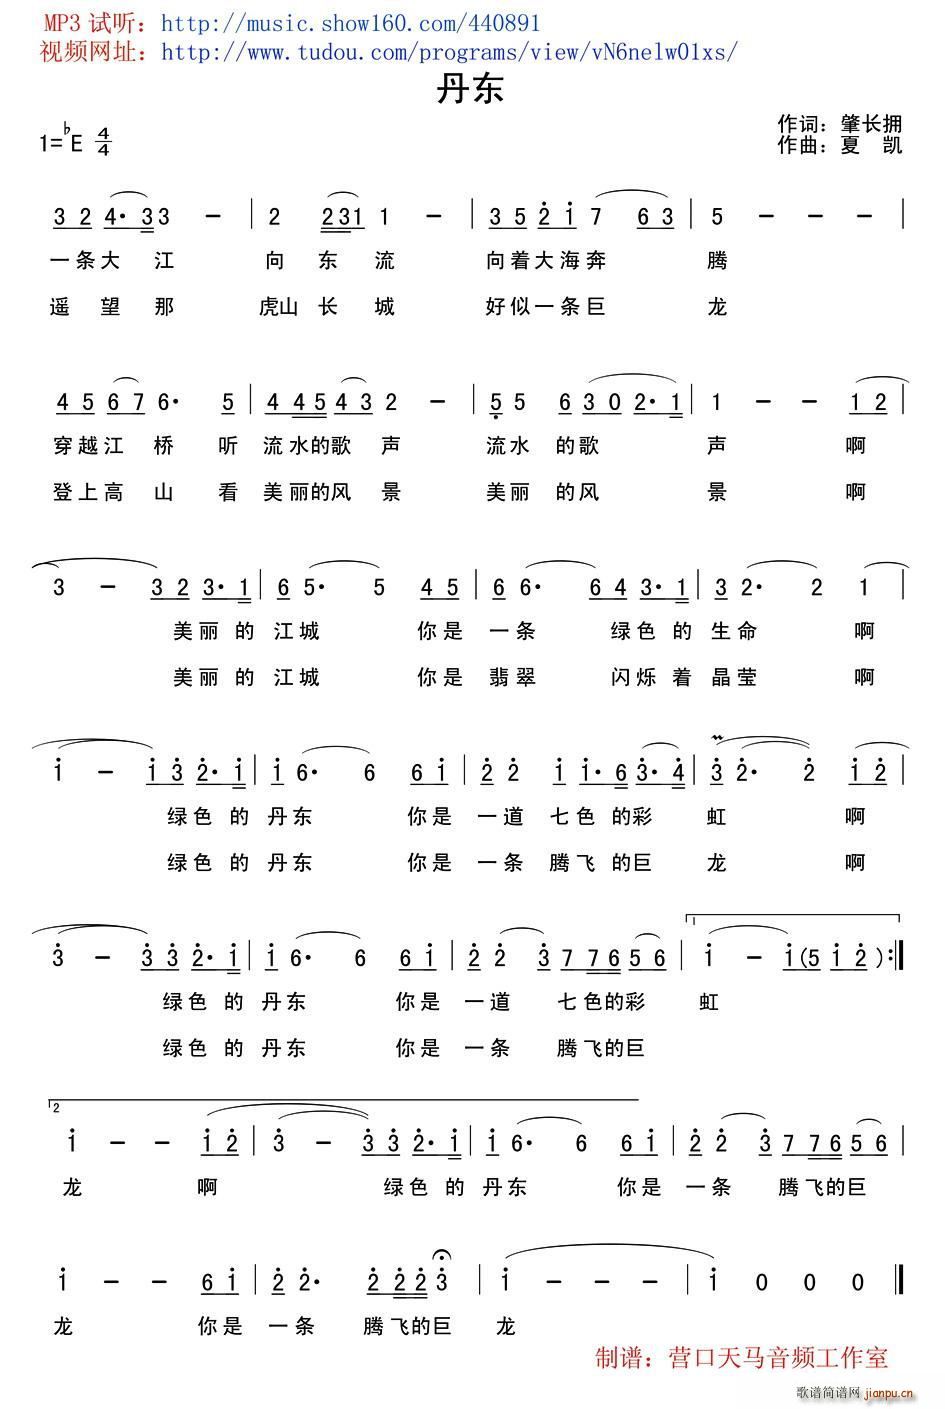 MP3 试听：http://music.show160.com/440891
视频网址：http://www.tudou.com/programs/view/vN6nelw01xs/
丹东
作词：肇长拥
1=♭E 4/4
作曲：夏 凯
3 2 4· 3 3 － | 2 2 3 1 1 － | 3 5 2 1 7 6 3 | 5 － － － |
一条大 江 向 东 流 向着大海奔 腾
遥 望 那 虎山 长 城 好似一条巨 龙
4 5 6 7 6· 5 | 4 4 5 4 3 2 － | 5 5 6 3 0 2· 1 | 1 － － 1 2 |
穿越江 桥 听 流水的歌 声 流水 的歌 声 啊
登上高 山 看 美丽的风 景 美丽 的风 景 啊
3 － 3 2 3· 1 | 6 5· 5 4 5 | 6 6· 6 4 3· 1 | 3 2· 2 1 |
美丽 的 江城 你是 一条 绿色 的 生命 啊
美丽 的 江城 你是 翡翠 闪烁 着 晶莹 啊
1 － 1 3 2· 1 | 1 6· 6 6 1 | 2 2 1 1· 6 3· 4 | 3 2· 2 1 2 |
绿色 的 丹东 你是 一道 七色 的彩 虹 啊
绿色 的 丹东 你是 一条 腾飞 的巨 龙 啊
1
3 － 3 3 2· 1 | 1 6· 6 6 1 | 2 2 3 7 7 6 5 6 | 1 － 1 (5 1 2 ) :‖
绿色 的 丹东 你是 一道 七色的彩 虹
绿色 的 丹东 你是 一条 腾飞的巨
2
1 － － 1 2 | 3 － 3 3 2· 1 | 1 6· 6 6 1 | 2 2 3 7 7 6 5 6 |
龙 啊 绿色 的 丹东 你是 一条 腾飞的巨
1 － － 6 1 | 2 2· 2 2 2 3 | 1 － － － | 1 0 0 0 ‖
龙 你是 一条 腾飞的巨 龙
制谱：营口天马音频工作室
歌谱简谱网 jianpu.cn